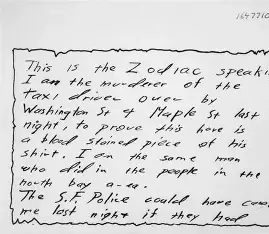 1647710
This is the Zodiac speaki
I am the murderer of the
taxi driver over by
Washington St & Maple St last
night, to prove this here is
a blood stained piece of his
shirt. I am the same man
who did in the people in the
north bay area.
The S.F. Police could have
me last night if they had